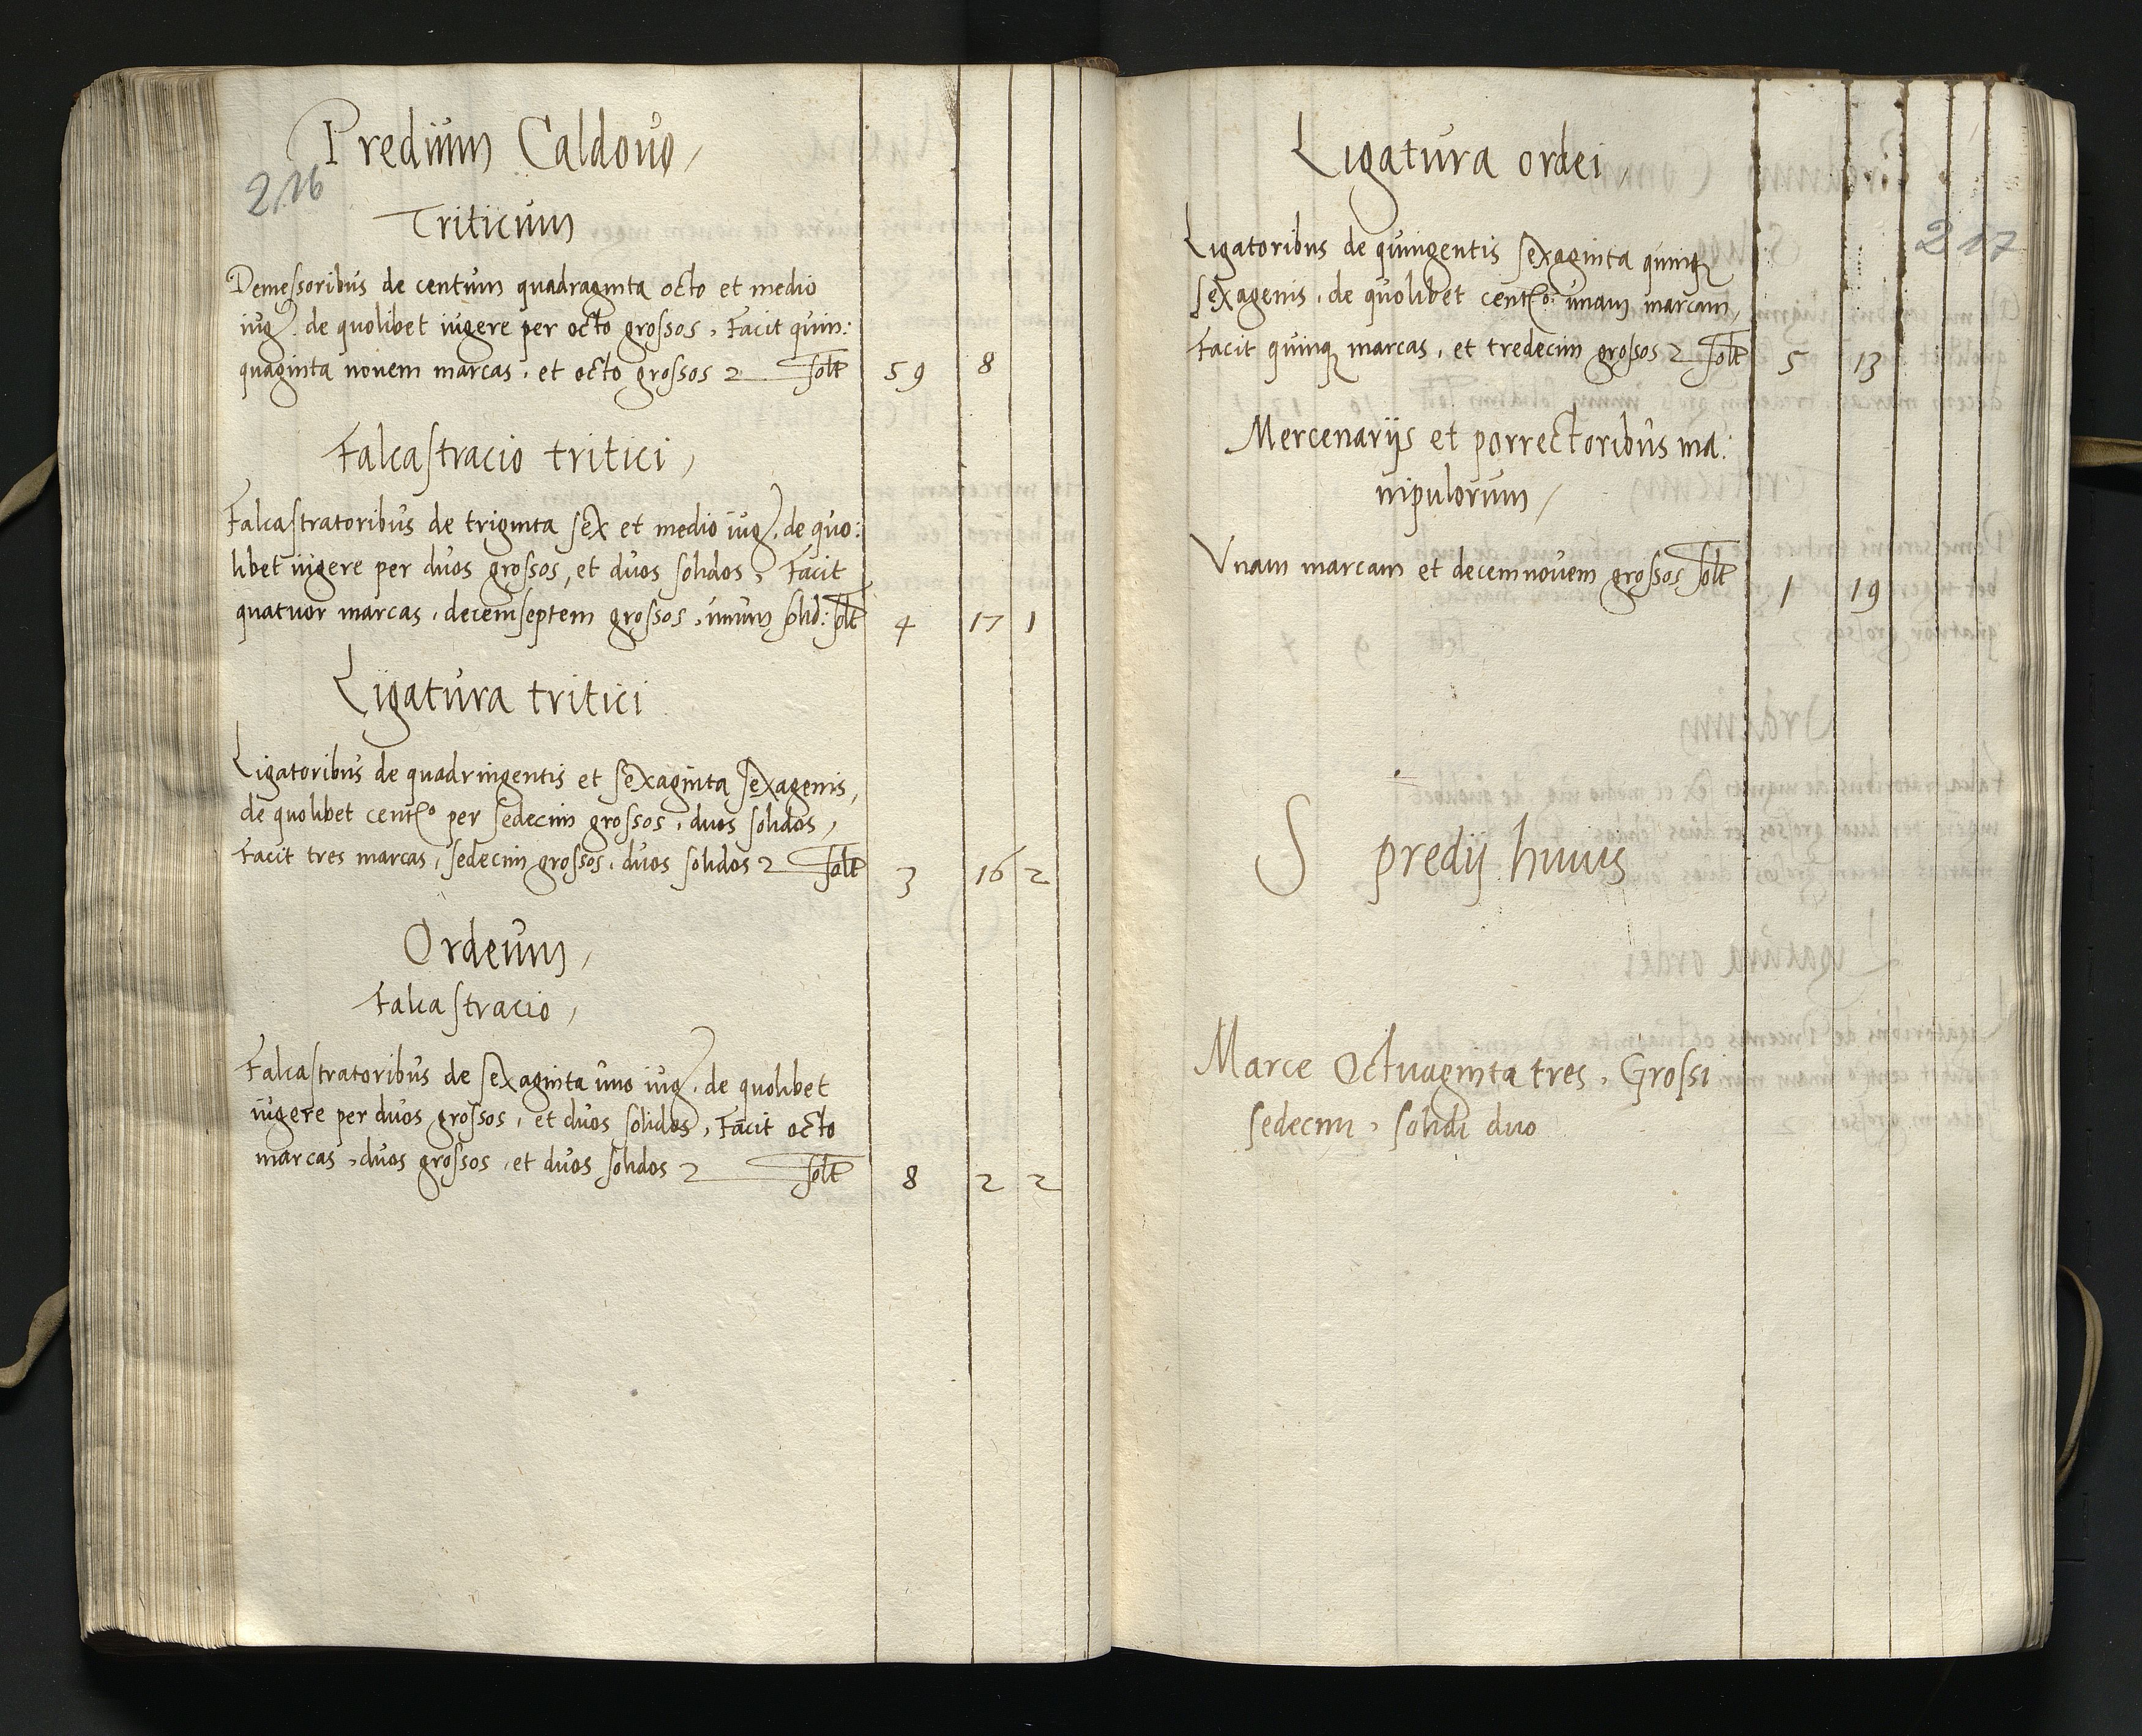 Predium Caldovo,
216
Triticum
Demessoribus de centum quadraginta octo et medio
iug. de quolibet iugere per octo grossos, Facit quin:
quaginta novem marcas, et octo grossos 2 solt 59 8
Falcastracio tritici,
Falcastratoribus de triginta sex et medio iug. de quo:
libet iugere per duos grossos, et duos solidos, Facit
quatuor marcas, decemseptem grossos, unum solid: solt 4 17 1
Ligatura tritici
Ligatoribus de quadringentis et sexaginta sexagenis,
de quolibet cent.o per sedecim grossos, duos solidos,
Facit tres marcas, sedecim grossos, duos solidos 2 solt 3 16 2
Ordeum,
Falcastracio,
Falcastratoribus de sexaginta uno iug. de quolibet
iugere per duos grossos, et duos solidos, Facit octo
marcas, duos grossos, et duos solidos 2 solt 8 2 2
Ligatura ordei,
217
Ligatoribus de quingentis sexaginta quinq
sexagenis, de quolibet cent.o: unam marcam,
Facit quinq marcas, et tredecim grossos 2 solt 5 13
Mercenarijs et porrectoribus ma:
nipulorum,
Vnam marcam et decemnovem grossos solt 1 19
S predij huius
Marce Octuaginta tres, Grossi
sedecim, solidi duo